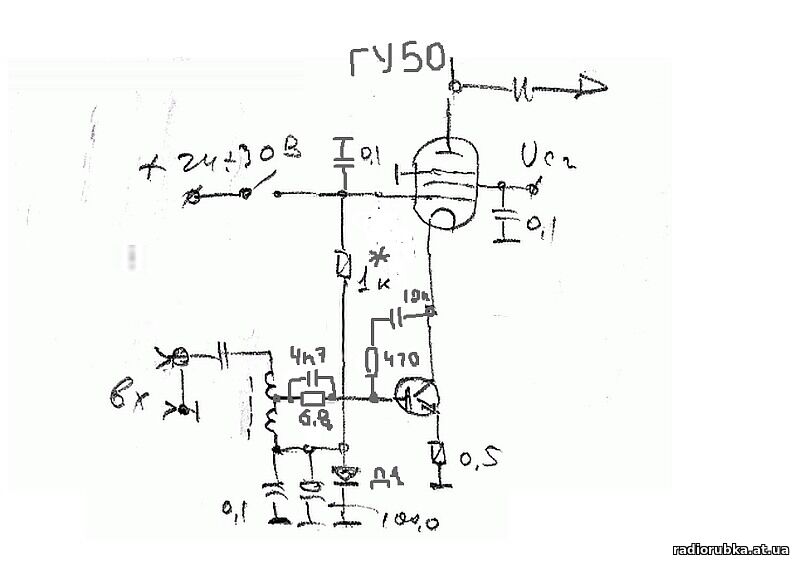 ГУ50
+ 24÷30 В
0,1
Uс2
0,1
*
1к
10н
4н7
470
6,8
вх
0,5
Д1
0,1
100,0
radiorubka.at.ua